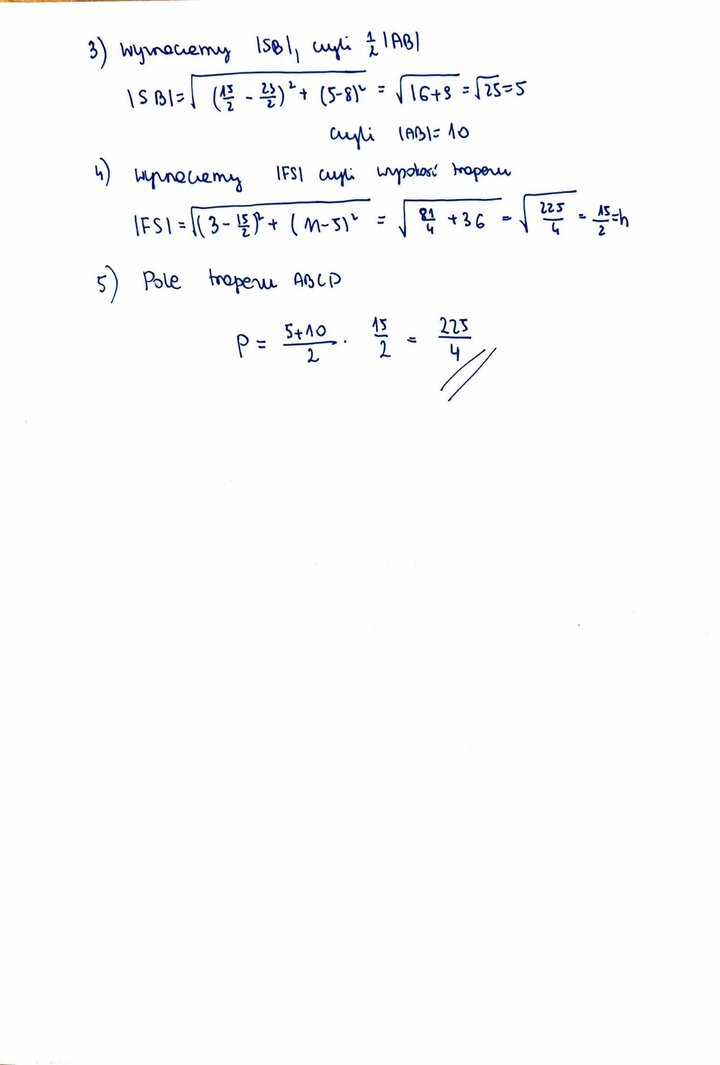 3) Wyznaczemy |SB|, czyli 1/2 |AB|
|SB| = √((15/2 - 23/2)² + (5-8)²) = √(16+9) = √25 = 5
czyli |AB| = 10
4) Wyznaczemy |FS| czyli wysokość trapezu
|FS| = √((3 - 15/2)² + (11-5)²) = √(81/4 + 36) = √(225/4) = 15/2 = h
5) Pole trapezu ABCD
P = (5+10)/2 · 15/2 = 225/4